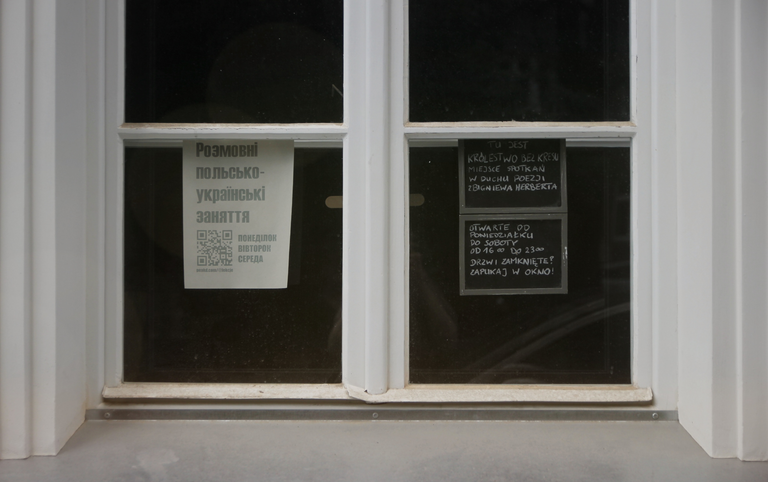 Розмовні
польсько-
українські
заняття
ПОНЕДІЛОК
ВІВТОРОК
СЕРЕДА
TU JEST
KRÓLESTWO BEZ KRESU
MIEJSCE SPOTKAŃ
W DUCHU POEZJI
ZBIGNIEWA HERBERTA
OTWARTE OD
PONIEDZIAŁKU
DO SOBOTY
OD 16⁰⁰ DO 23⁰⁰
DRZWI ZAMKNIĘTE?
ZAPUKAJ W OKNO!